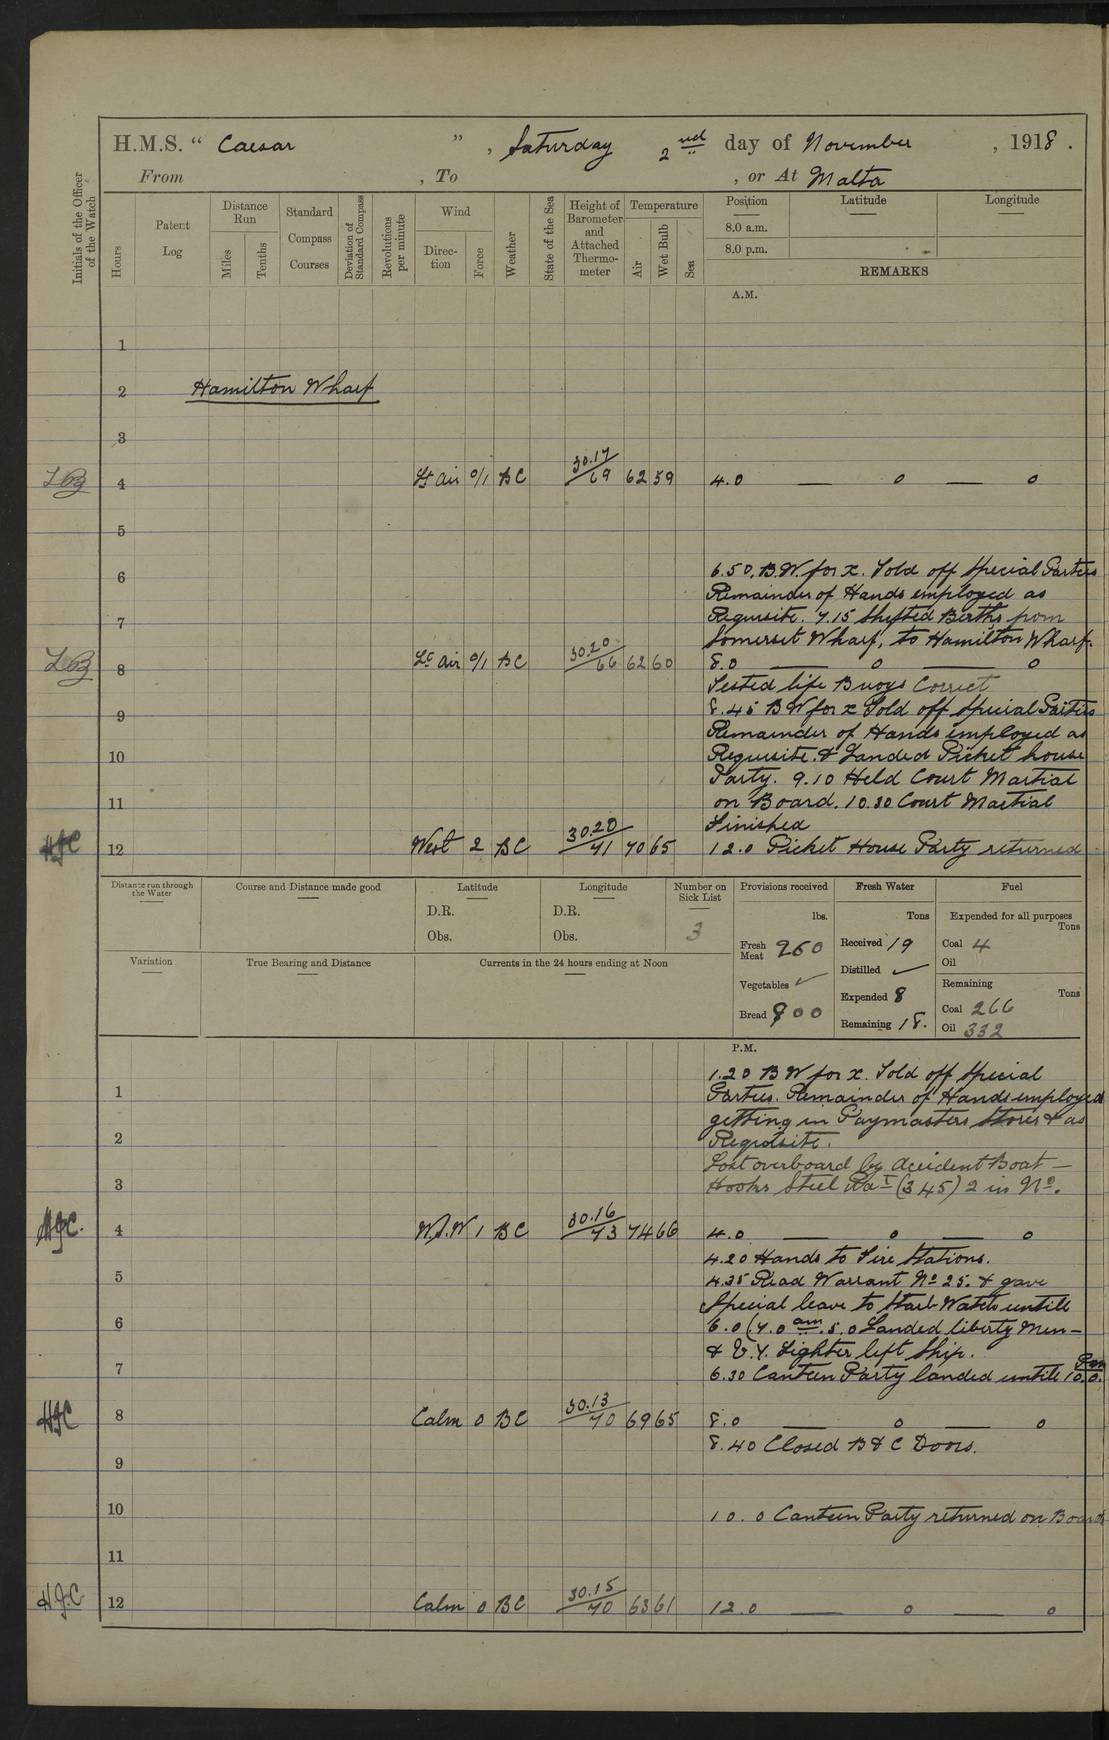 H.M.S. " Caesar ", Saturday 2nd day of November, 1918.
From , To , or At Malta
Initials of the Officer of the Watch
Hours
Patent Log
Distance Run
Miles
Tenths
Standard Compass Courses
Deviation of Standard Compass
Revolutions per minute
Wind
Direction
Force
Weather
State of the Sea
Height of Barometer and Attached Thermometer
Temperature
Air
Wet Bulb
Sea
Position
Latitude
Longitude
8.0 a.m.
8.0 p.m.
REMARKS
A.M.
1
2 Hamilton Wharf
3
4 Lt air 0/1 BC 30.17/69 62 59 4.0 — 0 — 0
5
6 6.50. B.W. for x. Told off Special Parties
Remainder of Hands employed as
7 Requisite. 7.15 Shifted Berths from
Somerset Wharf, to Hamilton Wharf.
8 Lt air 0/1 BC 30.20/66 62 60 8.0 — 0 — 0
Tested life Buoys Correct
9 8.45 BW for x Told off Special Parties
Remainder of Hands employed as
10 Requisite. & Landed Picket house
Party. 9.10 Held Court Martial
11 on Board. 10.30 Court Martial
Finished
HJC 12 West 2 BC 30.20/71 70 65 12.0 Picket House Party returned
Distance run through the Water
Course and Distance made good
Latitude
D.R.
Obs.
Longitude
D.R.
Obs.
Number on Sick List
3
Variation
True Bearing and Distance
Currents in the 24 hours ending at Noon
Provisions received
lbs.
Fresh Meat 260
Vegetables ✓
Bread 900
Fresh Water
Tons
Received 19
Distilled ✓
Expended 8
Remaining 18.
Fuel
Expended for all purposes
Tons
Coal 4
Oil
Remaining
Tons
Coal 266
Oil 332
P.M.
1.20 BW for x. Told off Special
1 Parties. Remainder of Hands employed
getting in Paymasters Stores & as
2 Requisite.
Lost overboard by accident Boat —
3 Hooks Steel (345) 2 in No.
HJC. 4 W.S.W 1 BC 30.16/73 74 66 4.0 — 0 — 0
4.20 Hands to Fire Stations.
5 4.35 Read Warrant No 25. & gave
Special leave to Starb Watch untill
6 6.0 (7.0 am. 5.0 Landed liberty Men —
& V.Y. Lighter left Ship.
7 6.30 Canteen Party landed untill 10.0. Pm
HJC 8 Calm 0 BC 30.13/70 69 65 8.0 — 0 — 0
8.40 Closed B & C Doors.
9
10 10.0 Canteen Party returned on Board
11
HJC. 12 Calm 0 BC 30.15/70 63 61 12.0 — 0 — 0